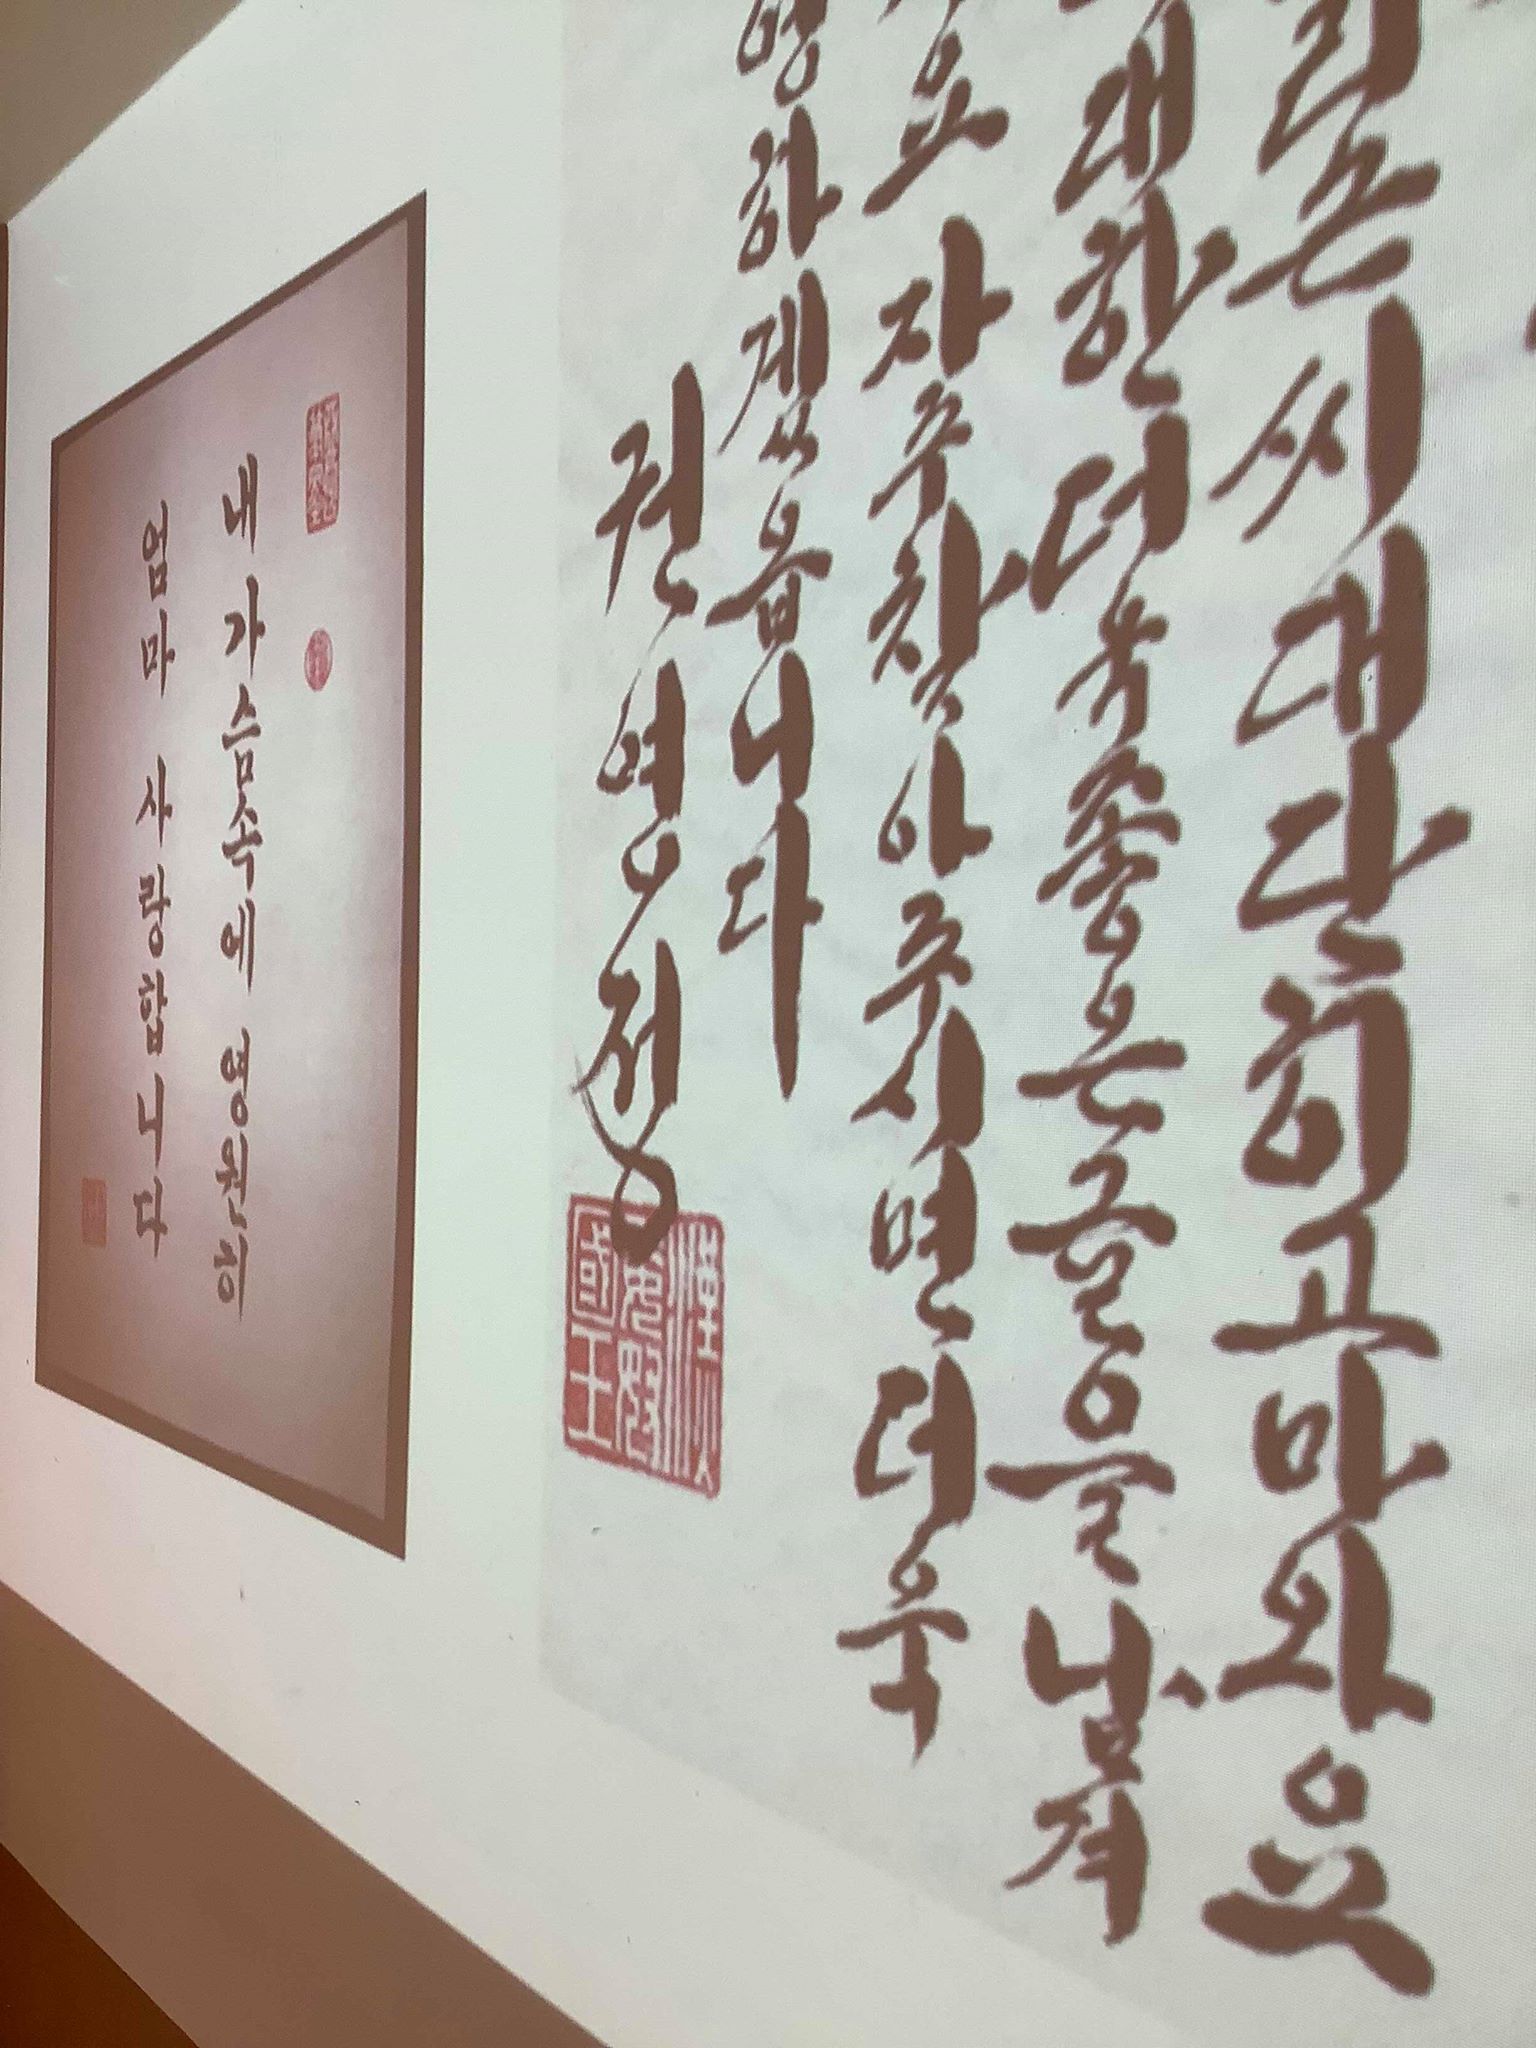 씨 대단히 고마와요
대한 더욱 좋은 글을 남겨
요 자주 찾아주시면 더욱
영하겠읍니다
내 가슴속에 영원히
엄마 사랑합니다